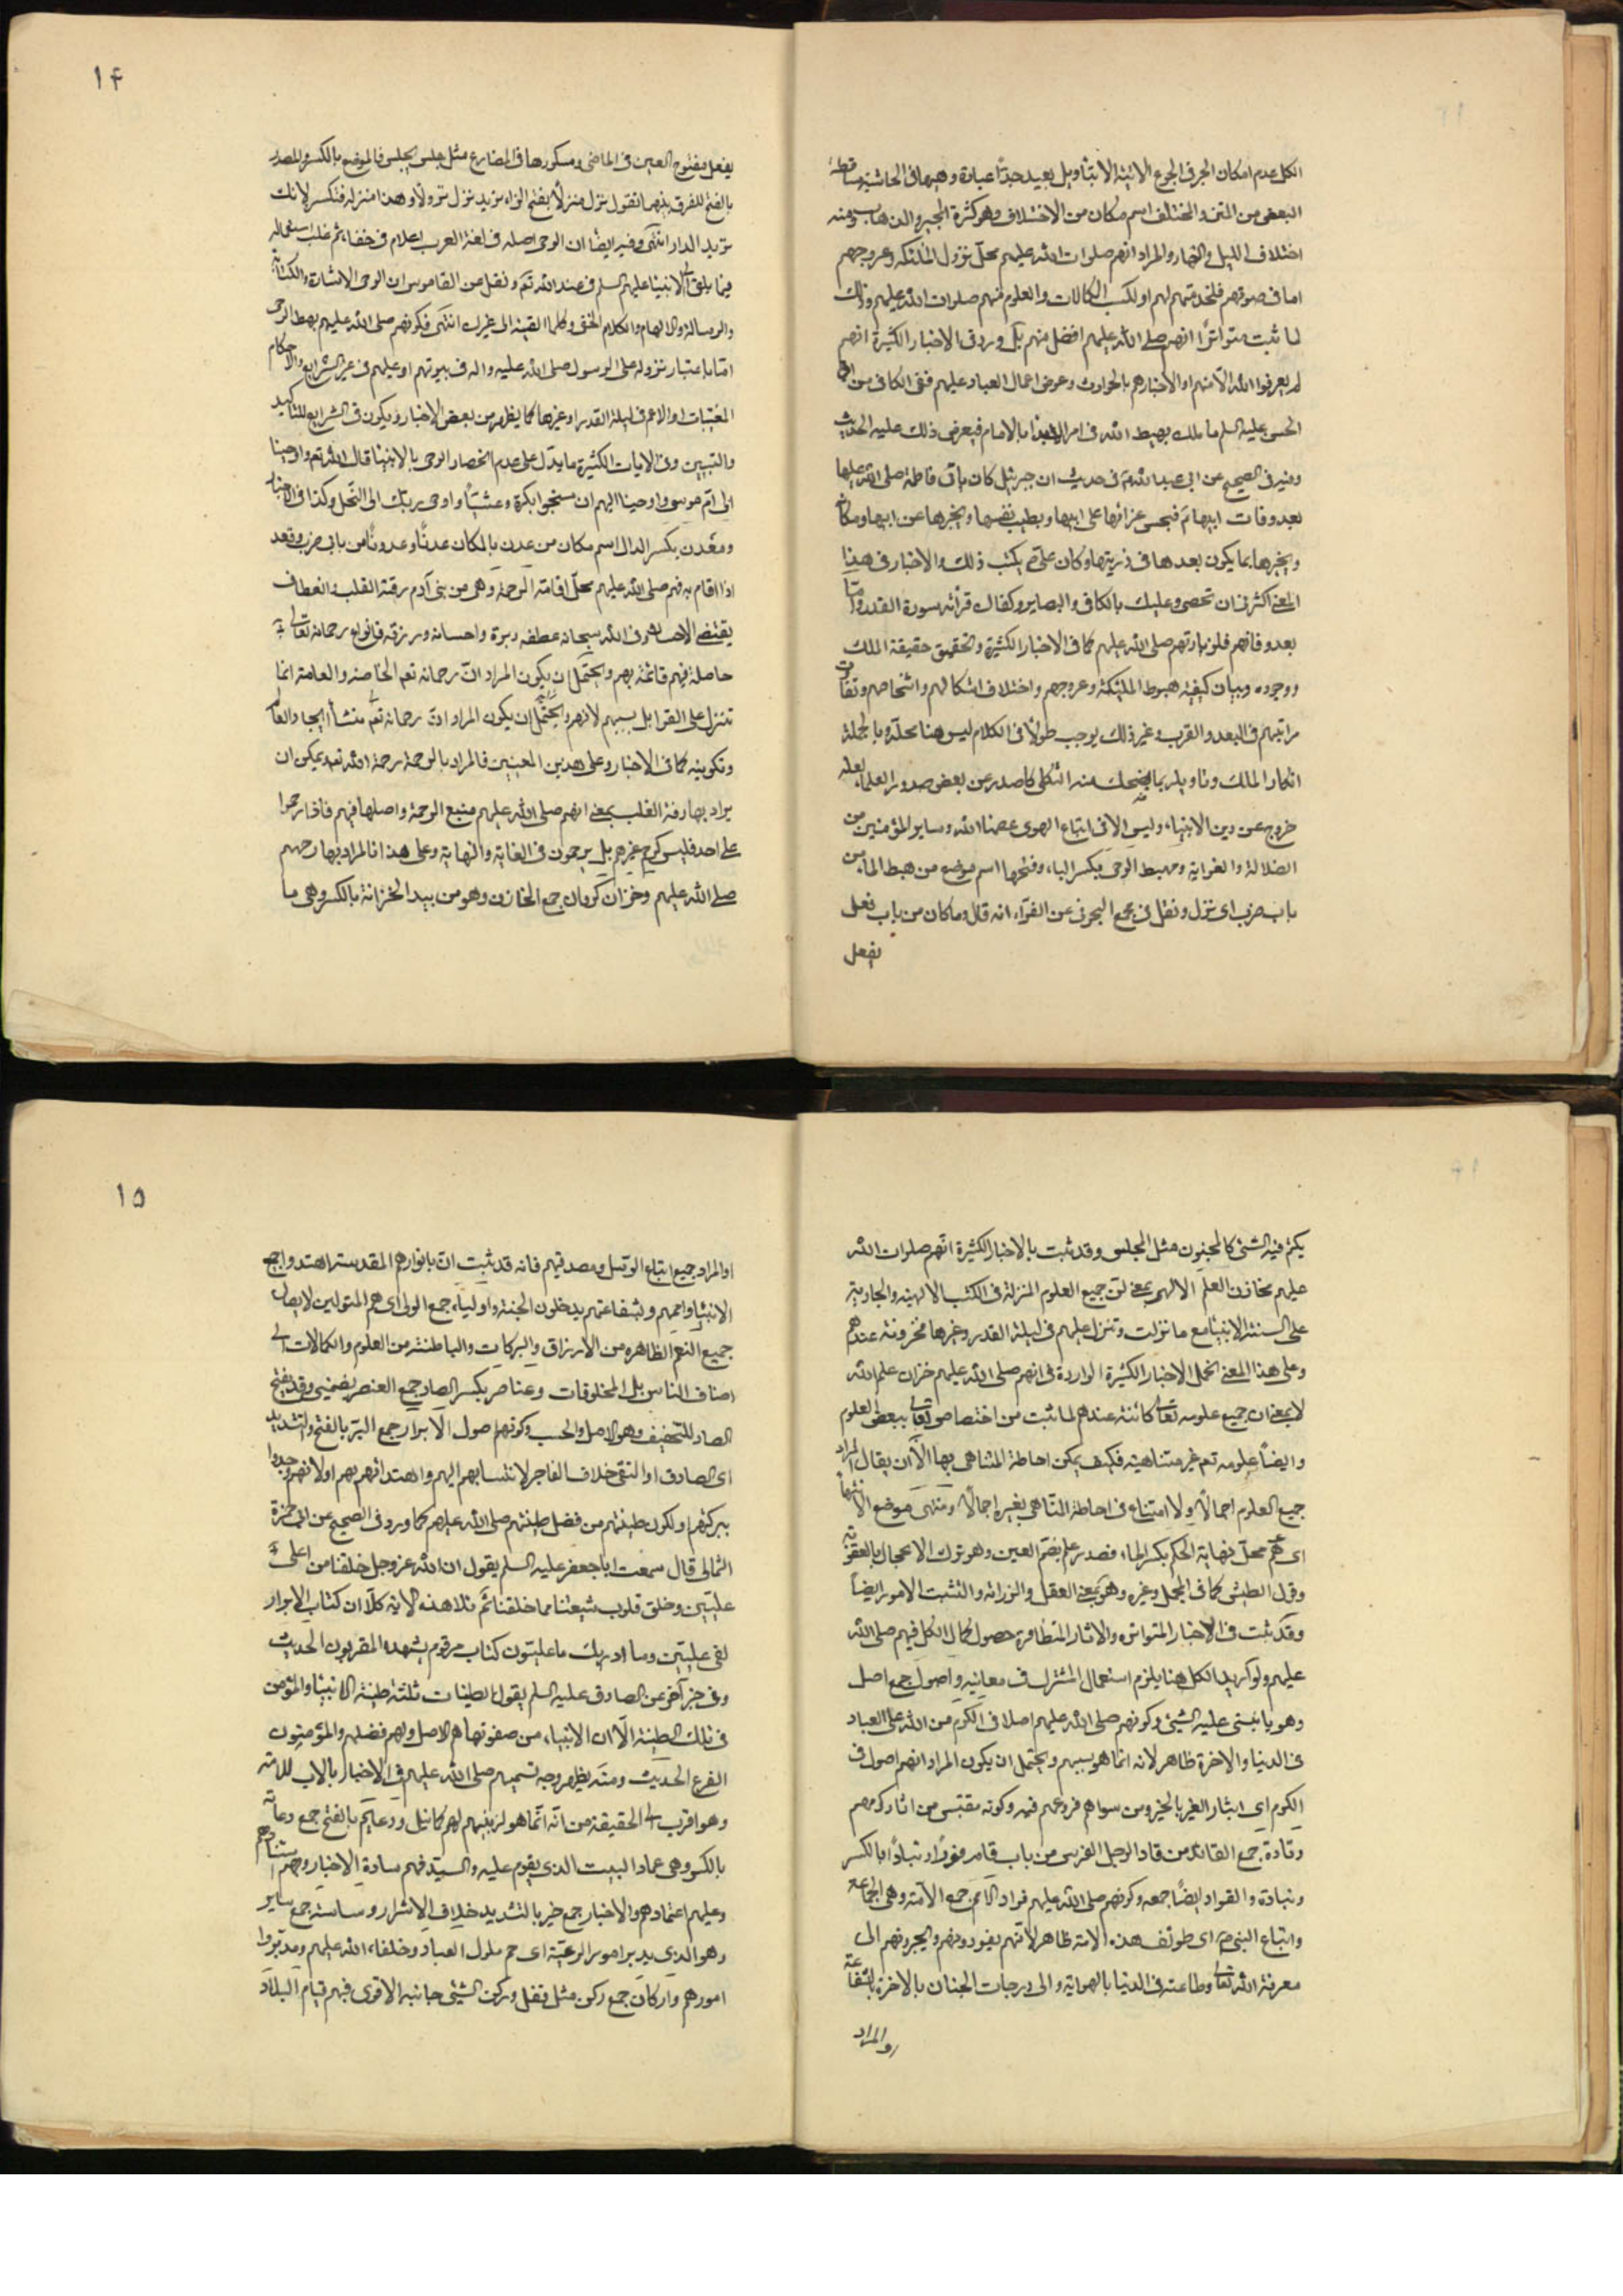 الكل عدم امكان الجر في الجوع الاتية الا بتاويل بعيد جدّا عبادة وهيهات في الحاشية ساقطة
البعض من المتن والمختلف اسم مكان من الاختلاف وهو كثرة المجيء والذهاب ومنه
اختلاف الليل والنهار والمراد انهم صلوات الله عليهم محلّ نزول الملئكة وعروجهم
اما في صوتهم فلخدمتهم لهم او لكسب الكمالات والعلوم منهم صلوات الله عليهم وذلك
لما ثبت متواترًا انهم صلى الله عليهم افضل منهم بل ورد في الاخبار الكثيرة انهم
لم يعرفوا الله الا منهم او لاخبارهم بالحوادث وعرض اعمال العباد عليهم ففي الكافي عن ابي
الحسن عليه السلم ما ملك يهبط الله في امر الا بدا بالامام فيعرض ذلك عليه الحديث
وفيه في الصحيح عن ابي عبد الله ع في حديث ان جبرئيل كان ياتي فاطمة صلى الله عليها
بعد وفات ابيها ص فيحسن عزائها على ابيها ويطيب نفسها ويخبرها عن ابيها ومكانه
ويخبرها بما يكون بعدها في ذريتها وكان علي ع يكتب ذلك والاخبار في هذا
المعنى اكثر من ان تحصى وعليك بالكافي والبصاير وكفاك قرائة سورة القدر واما
بعد وفاتهم فلزيارتهم صلى الله عليهم كما في الاخبار الكثيرة وتحقيق حقيقة الملك
ووجوده وبيان كيفية هبوط الملئكة وعروجهم واختلاف اشكالهم واشخاصهم وتفاوت
مراتبهم في البعد والقرب وغير ذلك يوجب طولًا في الكلام ليس هنا محلّه وبالجملة
انكار الملك وتاويله بما يضحك منه الثكلى كما صدر عن بعض صدور العلماء لعله
خروج عن دين الانبياء وليس الا في اتباع الهوى عصمنا الله وساير المؤمنين من
الضلالة والغواية ومهبط الوحى بكسر الباء وفتحها اسم موضع من هبط الماء من
باب ضرب اى نزل ونقل في مجمع البحرين عن الفرّاء انه قال وما كان من باب فعل
يفعل
١٤
يفعل مفتوح العين في الماضى ومكسورها في المضارع مثل جلس يجلس فالموضع بالكسر والمصدر
بالفتح للفرق بينهما تقول نزل منزلًا بفتح الزاء تريد نزل نزولًا وهذا منزله فتكسر لانك
تريد الدار انتهى وفيه ايضًا ان الوحى اصله في لغة العرب اعلام في خفاء ثم غلب استعماله
فيما يلقى الى الانبياء عليهم السلم من عند الله تع ونقل عن القاموس ان الوحى الاشارة والكتابة
والرسالة والالهام والكلام الخفى وكلما القيته الى غيرك انتهى فكونهم صلى الله عليهم مهبط الوحى
امّا باعتبار نزوله على الرسول صلى الله عليه واله في بيوتهم او عليهم في غير الشرايع والاحكام
المغيبات او الاعم في ليلة القدر وغيرها كما يظهر من بعض الاخبار ويكون في الشرايع للتاكيد
والتبيين وفي الايات الكثيرة ما يدلّ على عدم انحصار الوحى بالانبياء قال الله تع واوحينا
الى امّ موسى واوحينا اليهم ان سبحوا بكرة وعشيّا واوحى ربك الى النحل وكذا في الاخبار
ومعدن بكسر الدال اسم مكان من عدن بالمكان عدنًا وعدونًا من بابي ضرب وقعد
اذا اقام به فهم صلى الله عليهم محلّ اقامة الرحمة وهى من بنى آدم رقة القلب وانعطاف
يقتضي الاحسان ومن الله سبحانه عطفه وبره واحسانه ورزقه فانواع رحماته تعالى
حاصلة فيهم قائمة بهم ويحتمل ان يكون المراد انّ رحماته تع الخاصة والعامة انما
تنزل على القوابل بسببهم لانهم ويحتمل ان يكون المراد انّ رحماته تع منشأ ايجاد العالم
وتكوينه كما في الاخبار وعلى هذين المعنيين فالمراد بالرحمة رحمة الله تع ويمكن ان
يراد بها رقة القلب بمعنى انهم صلى الله عليهم منبع الرحمة واصلها فيهم فاذا رحموا
على احد فليس كرحم غيرهم بل يرحمون في الغاية والنهاية وعلى هذا فالمراد بها رحمهم
صلى الله عليهم وخزان كرمان جمع الخازن وهو من بيده الخزانة بالكسر وهى ما
يكم فيه الشئ كالمخزن مثل المجلس وقد ثبت بالاخبار الكثيرة انهم صلوات الله
عليهم مخازن العلم الالهى بمعنى ان جميع العلوم المنزلة في الكتب الالهية والجارية
على السنة الانبياء مع ما نزلت وتنزل عليهم في ليلة القدر وغيرها مخزونة عندهم
وعلى هذا المعنى تحمل الاخبار الكثيرة الواردة في انهم صلى الله عليهم خزان علم الله
لا بمعنى ان جميع علومه تعالى كائنة عندهم لما ثبت من اختصاصه تعالى ببعض العلوم
وايضًا علومه تع غير متناهية فكيف يمكن احاطة المتناهى بها الّا ان يقال المراد
جميع العلوم اجمالًا ولا امتناع في احاطة المتناهى بغيره اجمالًا ومنتهى موضع الانتهاء
اى هم محلّ نهاية الحكم بكسر الحاء فصدر علم بضم العين وهو ترك الاعجال بالعقوبة
وقيل الطيش كما في المجمل وغيره وهو بمعنى العقل والرزانة والتثبت الامور ايضًا
وقد ثبت في الاخبار المتواترة والاثار المتظافرة حصول كمال الكل فيهم صلى الله
عليهم ولو اريد الكل هنا يلزم استعمال المشترك في معانيه واصول جمع اصل
وهو ما يبتنى عليه الشئ وكونهم صلى الله عليهم اصلا في الكرم من الله على العباد
في الدنيا والاخرة ظاهر لانه انما هو بسببهم ويحتمل ان يكون المراد انهم اصول في
الكرم اى ايثار الغير بالخير ومن سواهم فروعهم فيه وكونه مقتبس من اثار كرمهم
وقادة جمع القائد من قاد الرجل الفرس من باب قام قودًا وقيادًا بالكسر
وقيادة والقواد ايضًا جمعه وكونهم صلى الله عليهم قواد الامم جمع الامة وهى الجماعة
واتباع النبى ص اى طوائف هذه الامة ظاهر لانهم يقودونهم ويجرونهم الى
معرفة الله تعالى وطاعته في الدنيا بالهداية والى درجات الجنان بالاخرة بالشفاعة
او المراد
١٥
او المراد جميع اتباع الرسل ومصدقيهم فانه قد ثبت انّ بانوارهم المقدسة اهتدوا جميع
الانبياء واممهم وبشفاعتهم يدخلون الجنة واولياء جمع الولى اى هم المتولين لايصال
جميع النعم الظاهرة من الارزاق والبركات والباطنة من العلوم والكمالات الى
اصناف الناس بل المخلوقات وعناصر بكسر الصاد جمع العنصر بضمتين وقد يفتح
الصاد للتخفيف وهو الاصل والحسب وكونهم اصول الابرار جمع البرّ بالفتح والتشديد
اى الصادق او التقى خلاف الفاجر لانتسابهم اليهم واهتدائهم بهم او لانهم وجدوا
ببركتهم او لكون طينتهم من فضل طينتهم صلى الله عليهم كما ورد في الصحيح عن ابي حمزة
الثمالى قال سمعت ابا جعفر عليه السلم يقول ان الله عز وجل خلقنا من اعلى
عليين وخلق قلوب شيعتنا مما خلقنا ثم تلا هذه الاية كلّا ان كتاب الابرار
لفى عليين وما ادريك ما عليون كتاب مرقوم يشهده المقربون الحديث
وفي خبر آخر عن الصادق عليه السلم يقول الطينات ثلثة طينة الانبياء والمؤمن
في تلك الطينة الّا ان الانبياء من صفوتها هم الاصل ولهم فضلهم والمؤمنون
الفرع الحديث ومنه يظهر وجه تسميتهم صلى الله عليهم في الاخبار بالاب للامة
وهو اقرب الى الحقيقة من انّه انّما هو لتربيتهم لهم كما قيل ودعايم بالفتح جمع دعامة
بالكسر وهى عماد البيت الذى يقوم عليه والسيد فهم سادة الاخيار وبهم استنادهم
وعليهم اعتمادهم والاخيار جمع خير بالتشديد خلاف الاشرار وساسة جمع سايس
وهو الذى يدبر امور الرعية اى هم ملوك العباد وخلفاء الله عليهم ومدبروا
امورهم واركان جمع ركن مثل قفل وركن الشئ جانبه الاقوى فبهم قيام البلاد